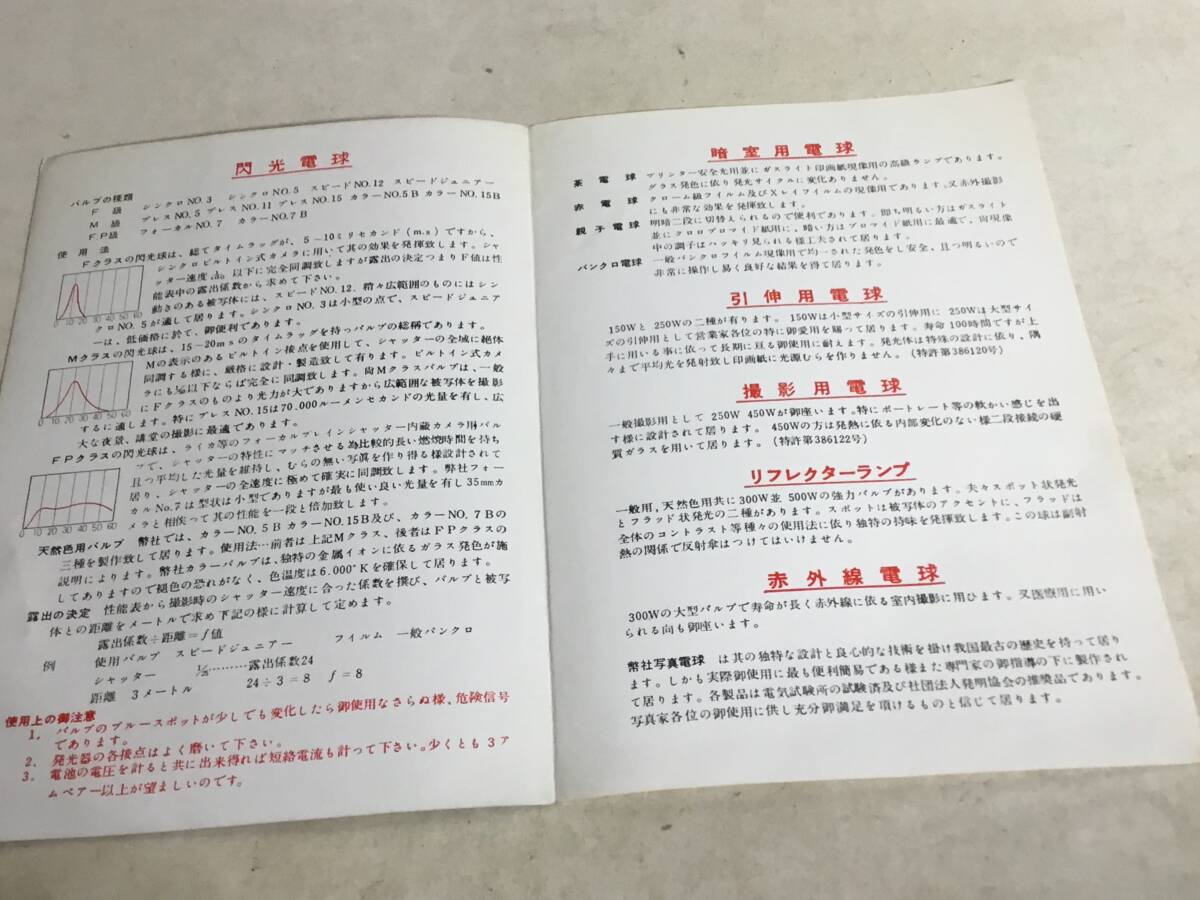 閃光電球
バルブの種類
F 級 シンクロNO.3 シンクロNO.5 スピードNO.12 スピードジュニアー
M 級 プレスNO.5 プレスNO.11 プレスNO.15 カラーNO.5B カラーNO.15B
FP級 フォーカルNO.7 カラーNO.7B
使用法
Fクラスの閃光球は、総てタイムラッグが、5-10ミリセカンド(m.s)ですから、
シンクロビルトイン式カメラに用いて其の効果を発揮致します。シャ
ッター速度 以下に完全同調致しますが露出の決定つまりF値は性
能表中の露出係数から求めて下さい。
動きのある被写体には、スピードNO.12. 稍々広範囲のものにはシン
クロNO.5が適して居ります。シンクロNO.3は小型の点で、スピードジュニア
ーは、低価格に於て、御便利であります。
0 10 20 30 40 50 60
Mクラスの閃光球は、15-20msのタイムラッグを持っバルブの総称であります。
Mの表示のあるビルトイン接点を使用して、シャッターの全域に絶体
同調する様に、厳格に設計・製造致して有ります。ビルトイン式カメ
ラにも 以下ならば完全に同調致します。尚Mクラスバルブは、一般
にFクラスのものより光力が大でありますから広範囲な被写体を撮影
するに適します。特にプレスNO.15は70.000ルーメンセカンドの光量を有し、広
大な夜景、講堂の撮影に最適であります。
0 10 20 30 40 50 60
FPクラスの閃光球は、ライカ等のフォーカルプレインシャッター内蔵カメラ用バル
ブで、シャッターの特性にマッチさせる為比較的長い燃焼時間を持ち
且つ平均した光量を維持し、むらの無い写真を作り得る様設計されて
居り、シャッターの全速度に極めて確実に同調致します。弊社フォー
カルNo.7は型状は小型でありますが最も使い良い光量を有し35mmカ
メラと相俟って其の性能を一段と倍加致します。
0 10 20 30 40 50 60
天然色用バルブ 弊社では、カラーNO.5B カラーNO.15B及び、カラーNO.7Bの
三種を製作致して居ります。使用法…前者は上記Mクラス、後者はFPクラスの
説明によります。弊社カラーバルブは、独特の金属イオンに依るガラス発色が施
してありますので褪色の恐れがなく、色温度は6.000°Kを確保して居ります。
露出の決定 性能表から撮影時のシャッター速度に合った係数を撰び、バルブと被写
体との距離をメートルで求め下記の様に計算して定めます。
露出係数÷距離=f値
例 使用バルブ スピードジュニアー フィルム 一般パンクロ
シャッター 1/25………露出係数24
距離 3メートル 24÷3=8 f=8
使用上の御注意
1. バルブのブルースポットが少しでも変化したら御使用なさらぬ様、危険信号
であります。
2. 発光器の各接点はよく磨いて下さい。
3. 電池の電圧を計ると共に出来得れば短絡電流も計って下さい。少くとも3ア
ムペアー以上が望ましいのです。
暗室用電球
茶電球 プリンター安全光用並にガスライト印画紙現像用の高級ランプであります。
グラス発色に依り発光サイクルに変化ありません。
赤電球 クローム級フイルム及びXレイフイルムの現像用であります。又赤外撮影
にも非常な効果を発揮致します。
親子電球 明暗二段に切替えられるので便利であります。即ち明るい方はガスライト
並にクロロブロマイド紙用に、暗い方はブロマイド紙用に最適で、尚現像
中の調子はハッキリ見られる様工夫されて居ります。
パンクロ電球 一般パンクロフイルム現像用で均一された発色をし安全、且つ明るいので
非常に操作し易く良好な結果を得て居ります。
引伸用電球
150Wと250Wの二種が有ります。150Wは小型サイズの引伸用に250Wは大型サイ
ズの引伸用として営業家各位の特に御愛用を賜って居ります。寿命100時間ですが上
手に用いる事に依って長期に亘る御使用に耐えます。発光体は特殊の設計に依り、隅
々まで平均光を発射致し印画紙に光源むらを作りません。(特許第386120号)
撮影用電球
一般撮影用として 250W 450Wが御座います。特にポートレート等の軟かい感じを出
す様に設計されて居ります。 450Wの方は発熱に依る内部変化のない様二段接続の硬
質ガラスを用いて居ります。(特許第386122号)
リフレクターランプ
一般用、天然色用共に300W並500Wの強力バルブがあります。夫々スポット状発光
とフラッド状発光の二種があります。スポットは被写体のアクセントに、フラッドは
全体のコントラスト等種々の使用法に依り独特の持味を発揮致します。この球は副射
熱の関係で反射傘はつけてはいけません。
赤外線電球
300Wの大型バルブで寿命が長く赤外線に依る室内撮影に用ひます。又医療用に用い
られる向も御座います。
幣社写真電球 は其の独特な設計と良心的な技術を掛け我国最古の歴史を持って居り
ます。しかも実際御使用に最も便利簡易である様また専門家の御指導の下に製作され
て居ります。各製品は電気試験所の試験済及び社団法人発明協会の推奨品であります。
写真家各位の御使用に供し充分御満足を頂けるものと信じて居ります。